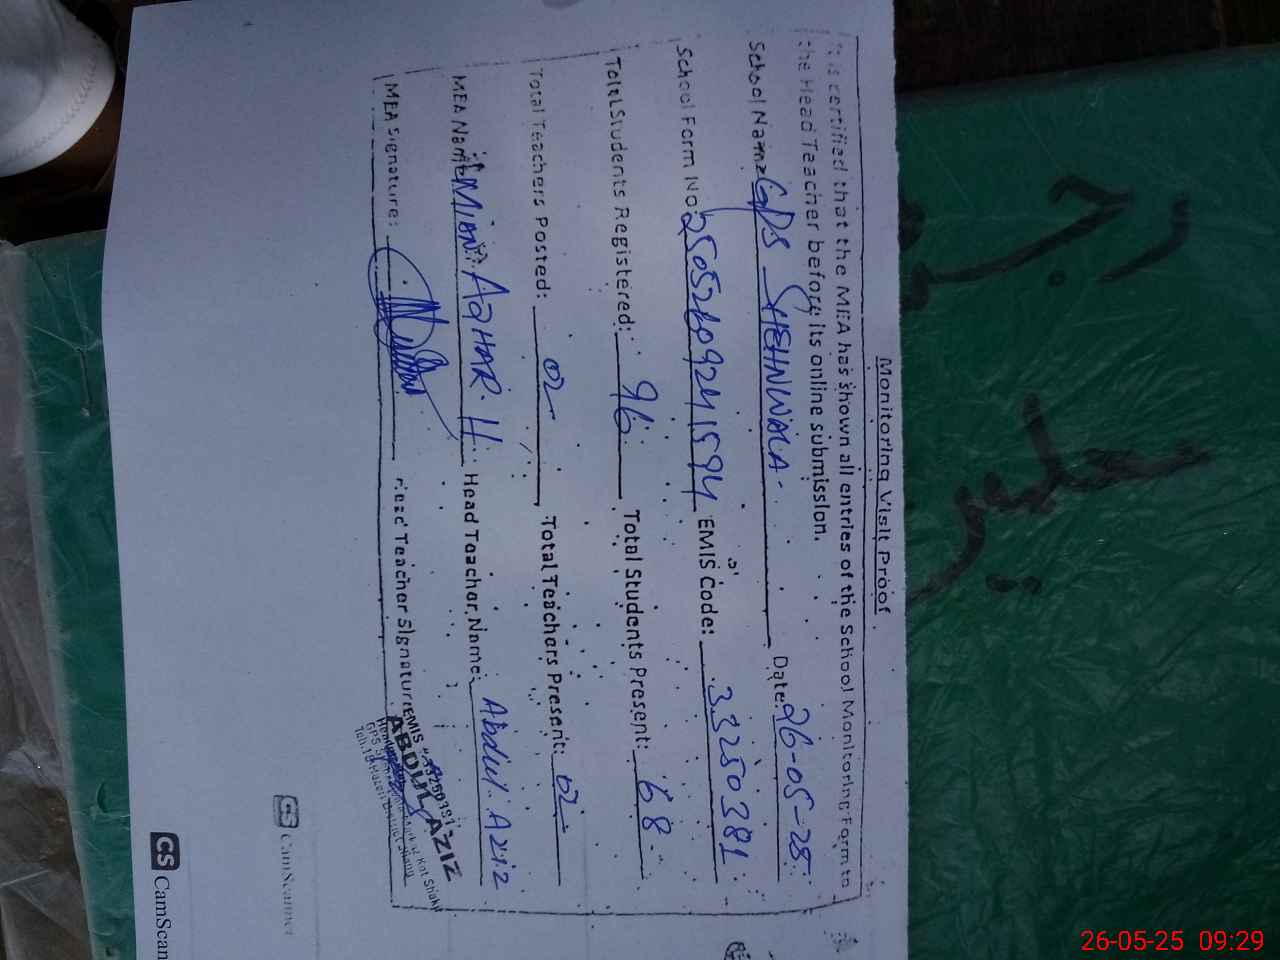 Monitoring Visit Proof
It is certified that the MEA has shown all entries of the School Monitoring Form to
the Head Teacher before its online submission.
School Name: GPS SHEHNWALA Date: 26-05-25
School Form No: 25052609241594 EMIS Code: 33250381
Total Students Registered: 96 Total Students Present: 68
Total Teachers Posted: 02 Total Teachers Present: 02
MEA Name: MIAN AZHAR. H Head Teacher Name: Abdul Aziz
MEA Signature: Head Teacher Signature:
EMIS 33250381
ABDUL AZIZ
CS CamScanner
CS CamScan
26-05-25 09:29